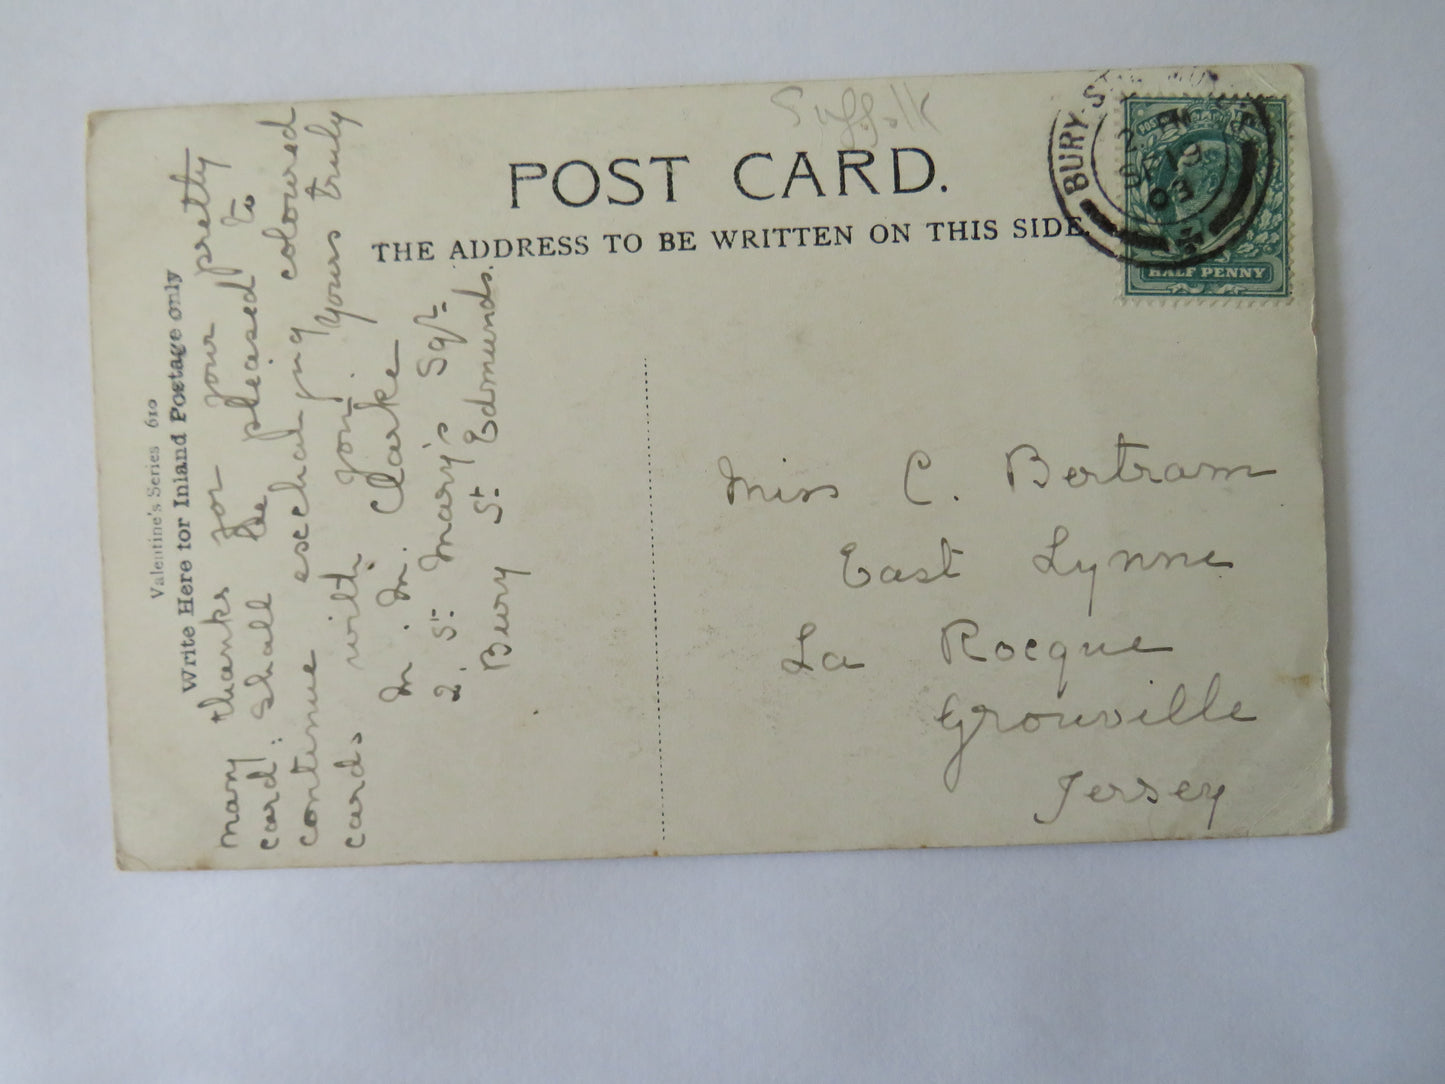 Suffolk
POST CARD.
THE ADDRESS TO BE WRITTEN ON THIS SIDE.
BURY ST
2 PM
SP 19
03
HALF PENNY
Valentine's Series 610
Write Here for Inland Postage only
Many thanks for your pretty
card: Shall be pleased to
continue exchanging colored
cards with you. Yours truly
M. M. Clarke
2. St. Mary's Sqr.
Bury St. Edmunds.
Miss C. Bertram
East Lynne
La Rocque
Grouville
Jersey